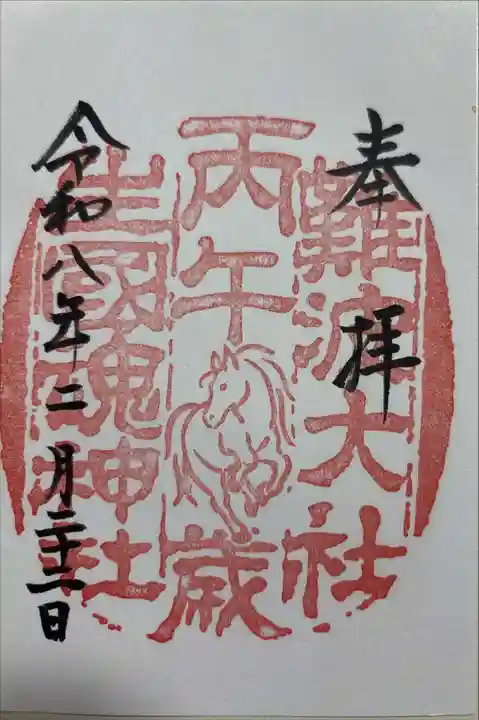 奉拝
難波大社
丙午歳
生國魂神社
令和八年二月二十一日